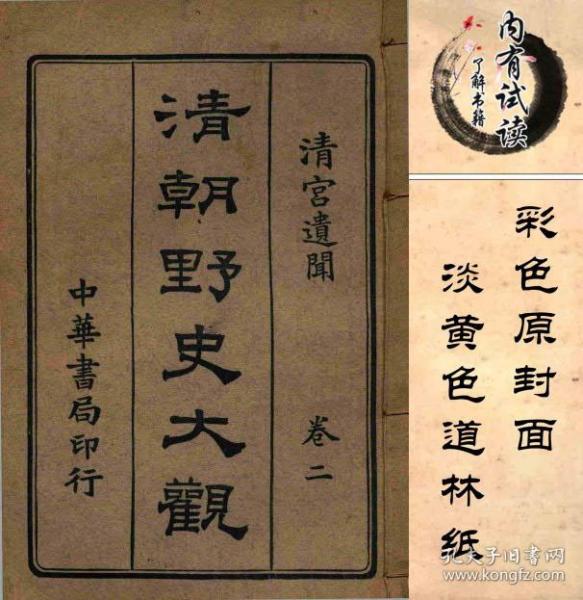 清宮遺聞
卷二
清朝野史大觀
中華書局印行
内有试读
了解书籍
彩色原封面
淡黄色道林纸
孔夫子旧书网
www.kongfz.com